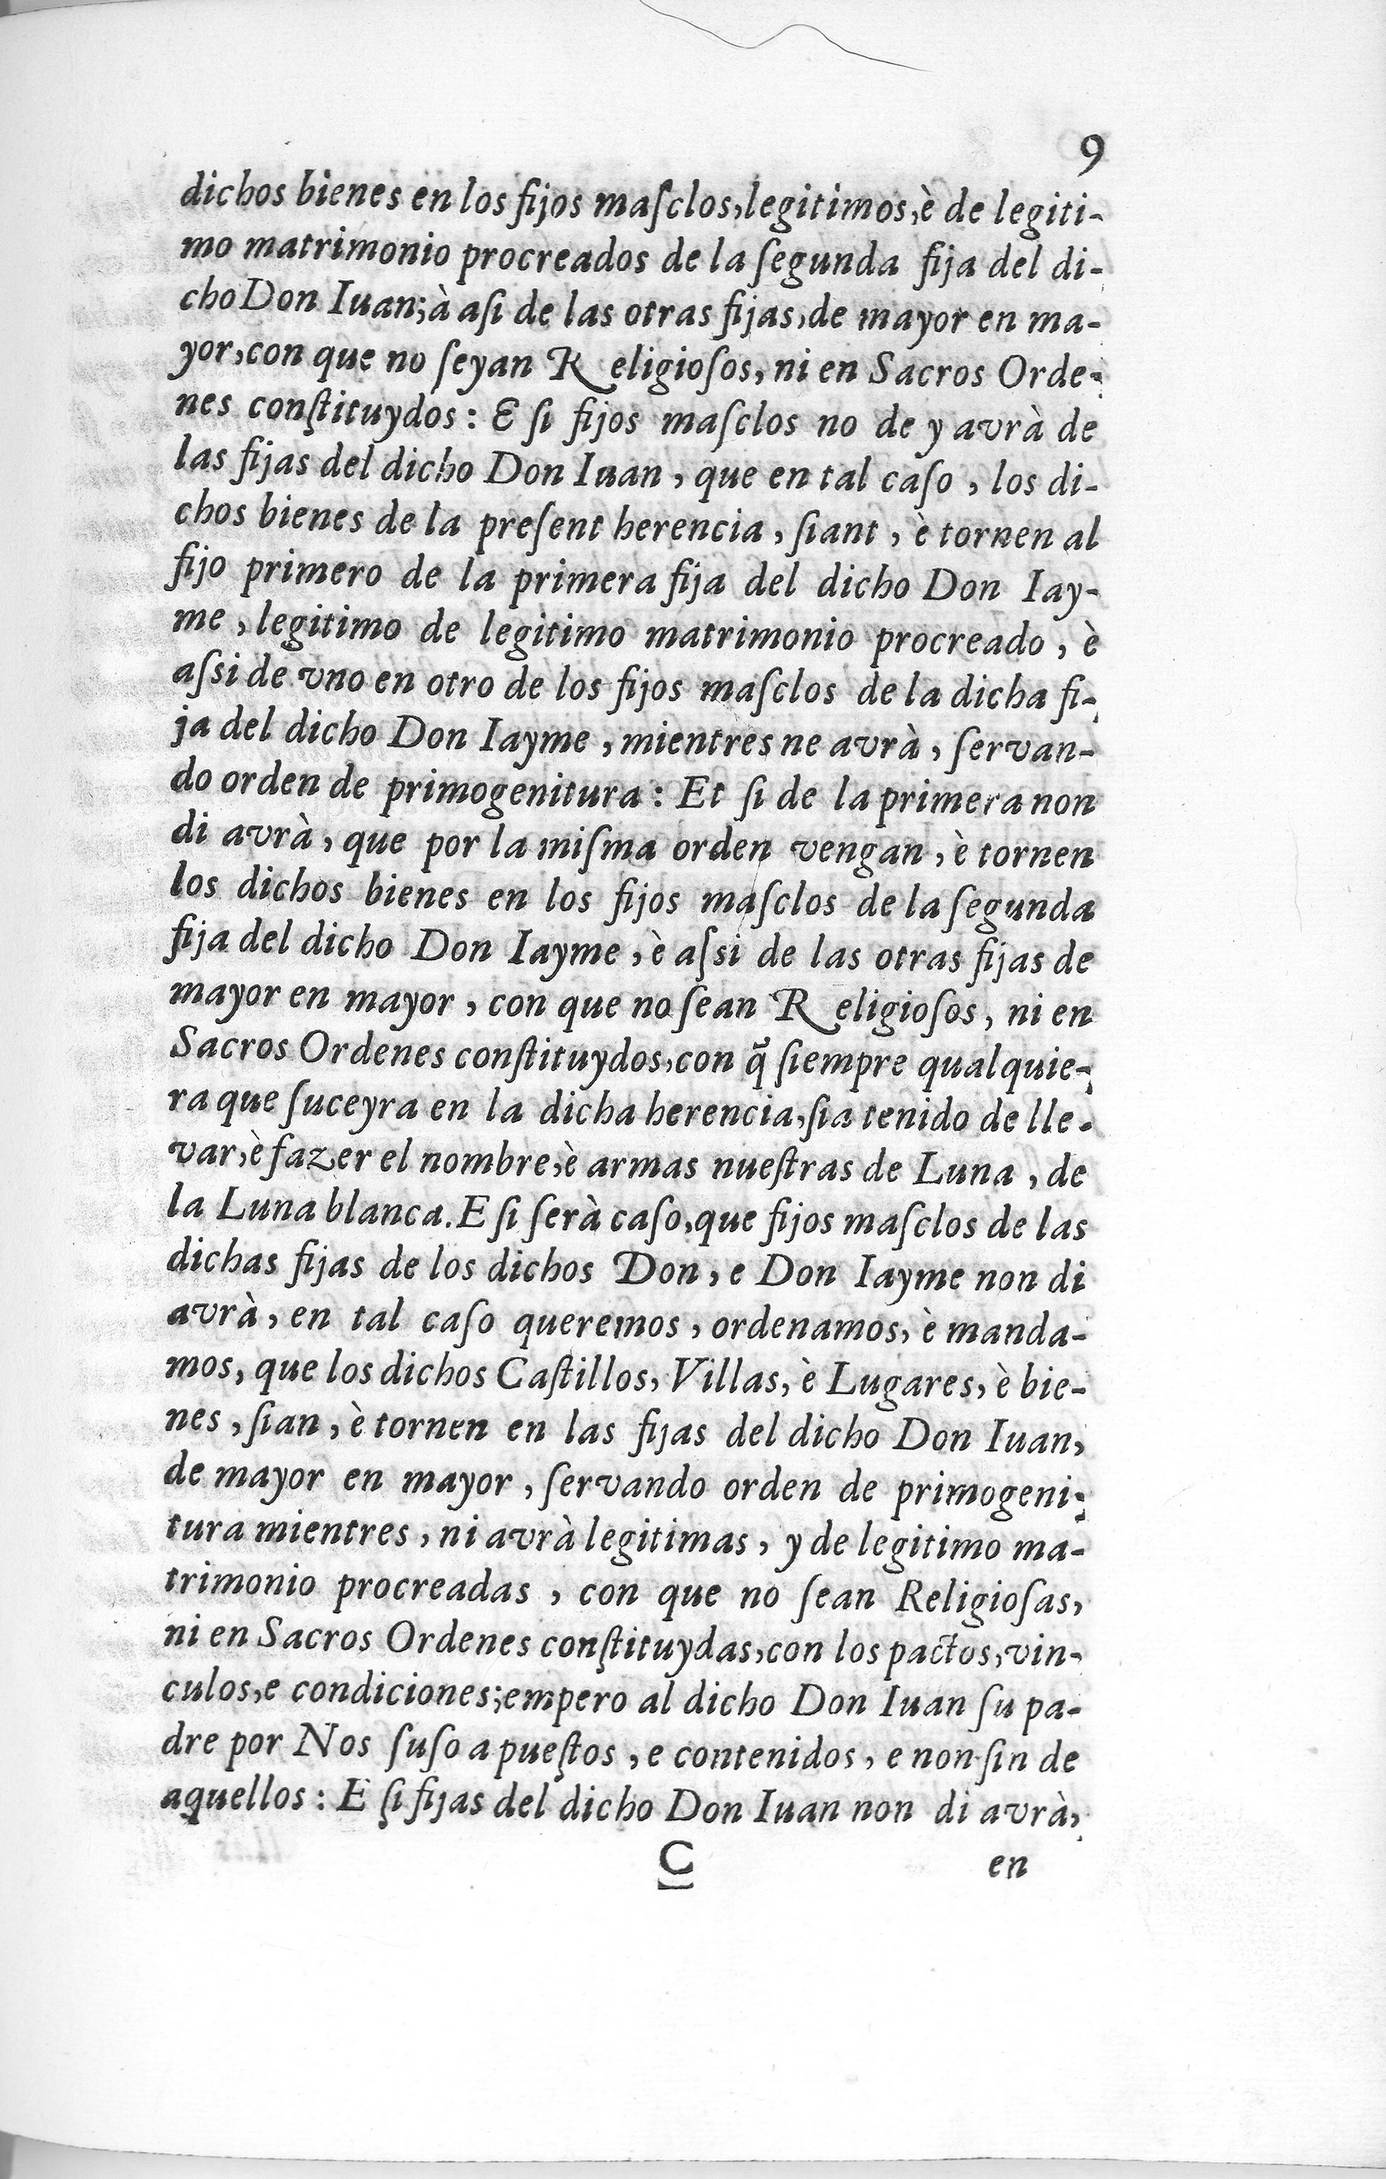 9
dichos bienes en los fijos maſclos,legitimos,è de legiti-
mo matrimonio procreados de la ſegunda fija del di-
cho Don Iuan;à aſi de las otras fijas,de mayor en ma-
yor,con que no ſeyan Religioſos, ni en Sacros Orde-
nes conſtituydos: E ſi fijos maſclos no de y avrà de
las fijas del dicho Don Iuan, que en tal caſo, los di-
chos bienes de la preſent herencia, ſiant, è tornen al
fijo primero de la primera fija del dicho Don Iay-
me, legitimo de legitimo matrimonio procreado, è
aſsi de vno en otro de los fijos maſclos de la dicha fi-
ja del dicho Don Iayme, mientres ne avrà, ſervan-
do orden de primogenitura: Et ſi de la primera non
di avrà, que por la miſma orden vengan, è tornen
los dichos bienes en los fijos maſclos de la ſegunda
fija del dicho Don Iayme, è aſsi de las otras fijas de
mayor en mayor, con que no ſean Religioſos, ni en
Sacros Ordenes conſtituydos,con q̃ ſiempre qualquie-
ra que ſuceyra en la dicha herencia,ſia tenido de lle-
var,è fazer el nombre,è armas nueſtras de Luna, de
la Luna blanca. E ſi ſerà caſo,que fijos maſclos de las
dichas fijas de los dichos Don, e Don Iayme non di
avrà, en tal caſo queremos, ordenamos, è manda-
mos, que los dichos Caſtillos, Villas, è Lugares, è bie-
nes, ſian, è tornen en las fijas del dicho Don Iuan,
de mayor en mayor, ſervando orden de primogeni-
tura mientres, ni avrà legitimas, y de legitimo ma-
trimonio procreadas, con que no ſean Religioſas,
ni en Sacros Ordenes conſtituydas,con los pactos,vin-
culos,e condiciones;empero al dicho Don Iuan ſu pa-
dre por Nos ſuſo apueſtos, e contenidos, e non ſin de
aquellos: E ſi fijas del dicho Don Iuan non di avrà,
C en